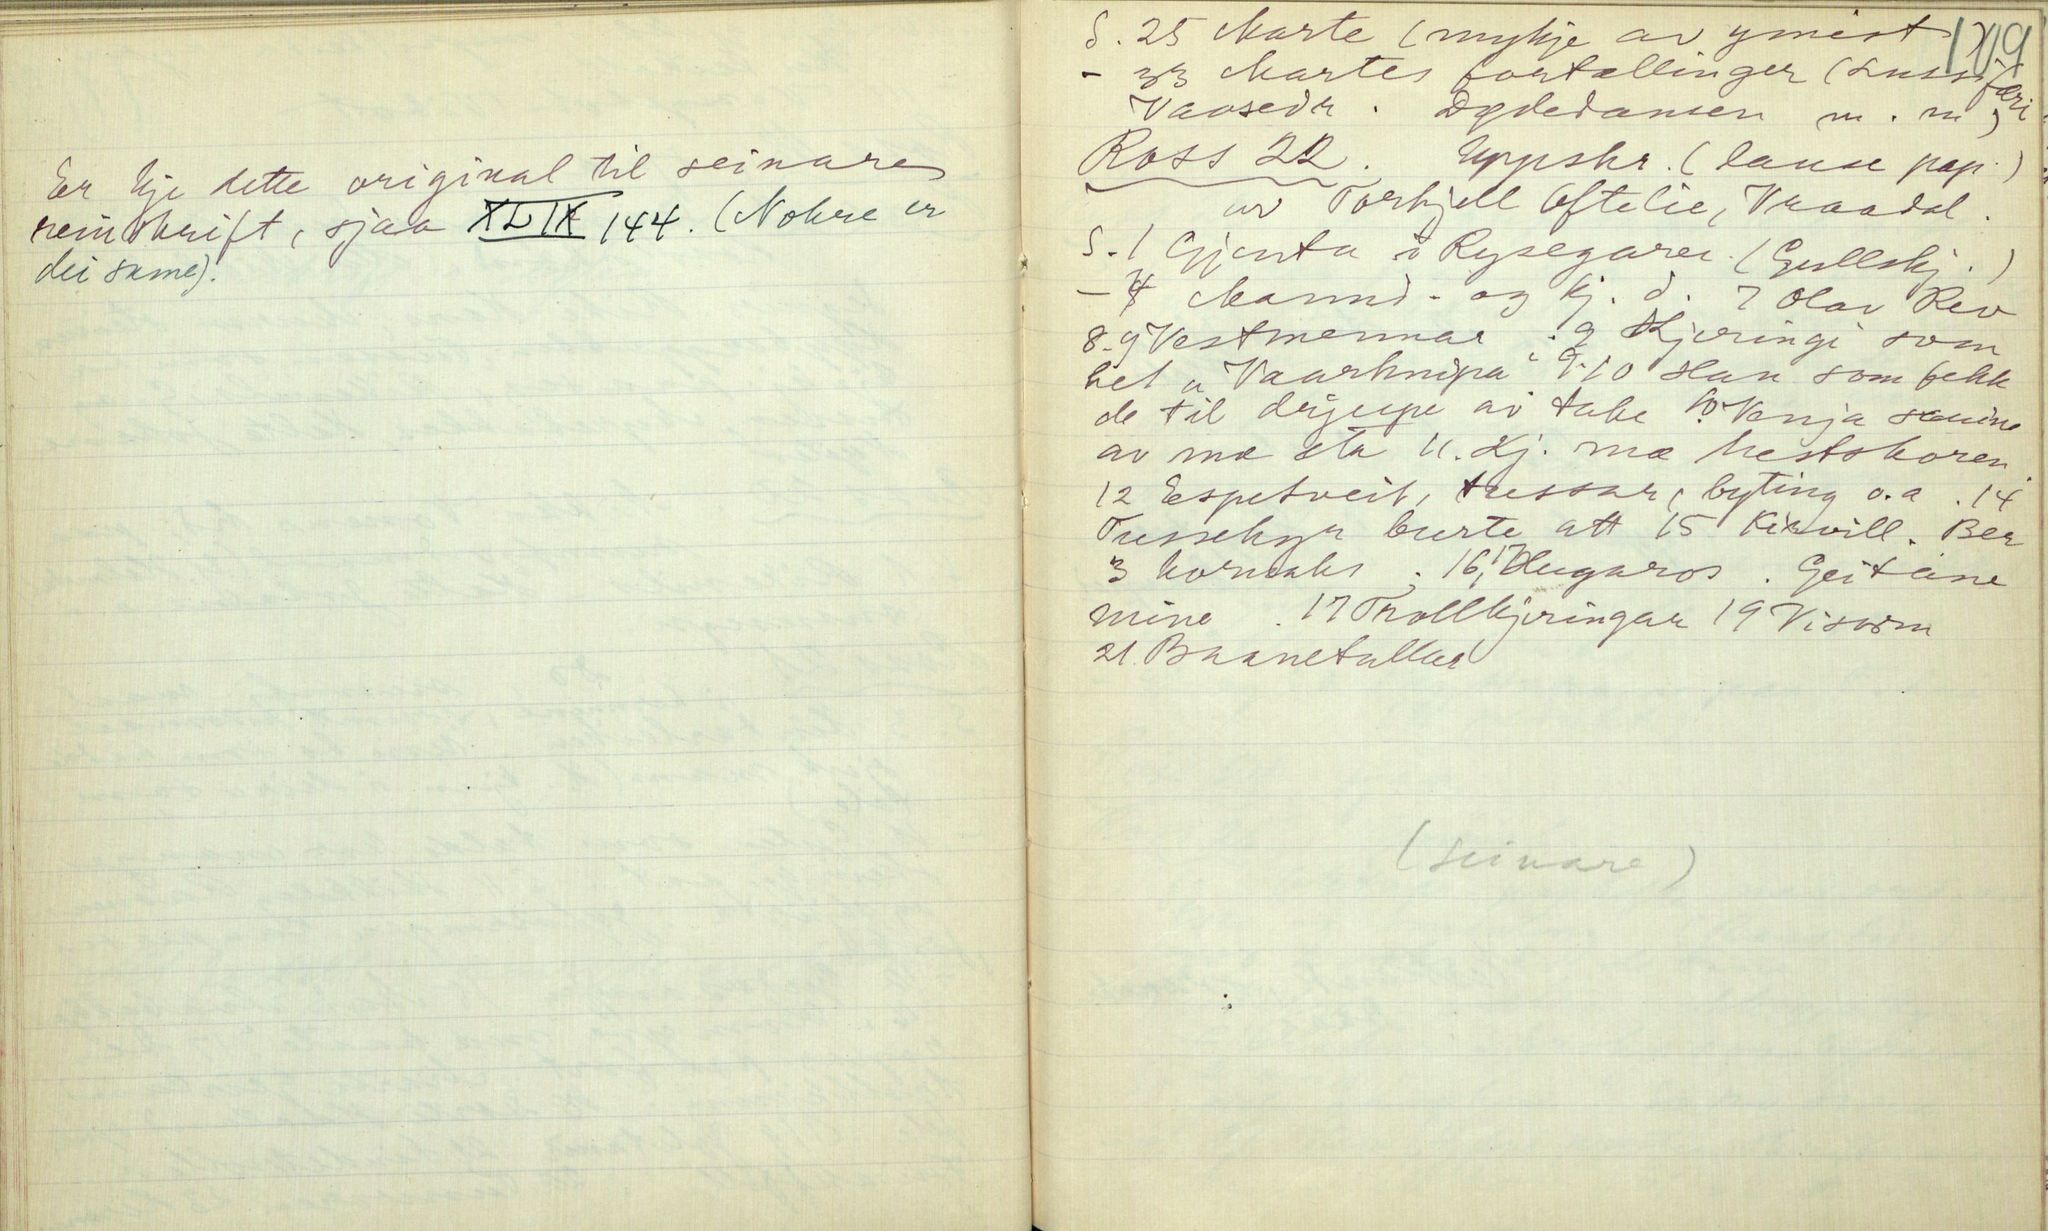 Er kje dette original til seinare
reinskrift, sjaa XLIX 144. (Nokre er
dei same).
179
S. 25 Marte (mykje av ymist
- 33 Martes fortællinger (Lussifæri
Vaosedr. Dødedansen m. m.)
Ross 22. Uppskr. (lause pap.)
av Torkjell Oftelie, Vraadal.
S. 1 Gjenta i Rysegarei. (Gullskj.)
- 4 Mannd- og kj. d. 7 Olav Rev
8-9 Vestmennar. 9 Kjeringi som
het a Vaarknipa 9-10 Han som fekk
de til drjupe av take 10. Venja
av mæ eta 11. Kj. mæ hestskoren
12 Espetveit, tussar, byting o.a. 14
Tussekyr burte att 15 Kirvill. Ber
3 kornaks. 16, 17 Hugaros. Geitane
mine. 17 Trollkjeringar 19 Visorm
21. Baanetullar
(seinare)